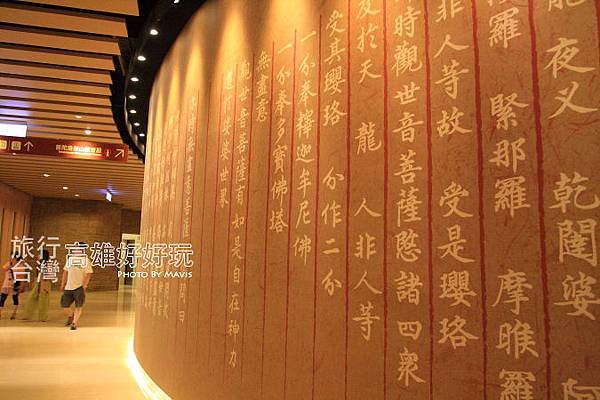 龍 夜叉 乾闥婆 阿
羅 緊那羅 摩睺羅
非人等故 受是瓔珞
時觀世音菩薩愍諸四眾
及於天 龍 人非人等
受其瓔珞 分作二分
一分奉釋迦牟尼佛
一分奉多寶佛塔
無盡意
觀世音菩薩有如是自在神力
遊於娑婆世界
時無盡意菩薩 問曰
旅行
台灣
高雄好好玩
PHOTO BY MAVIS